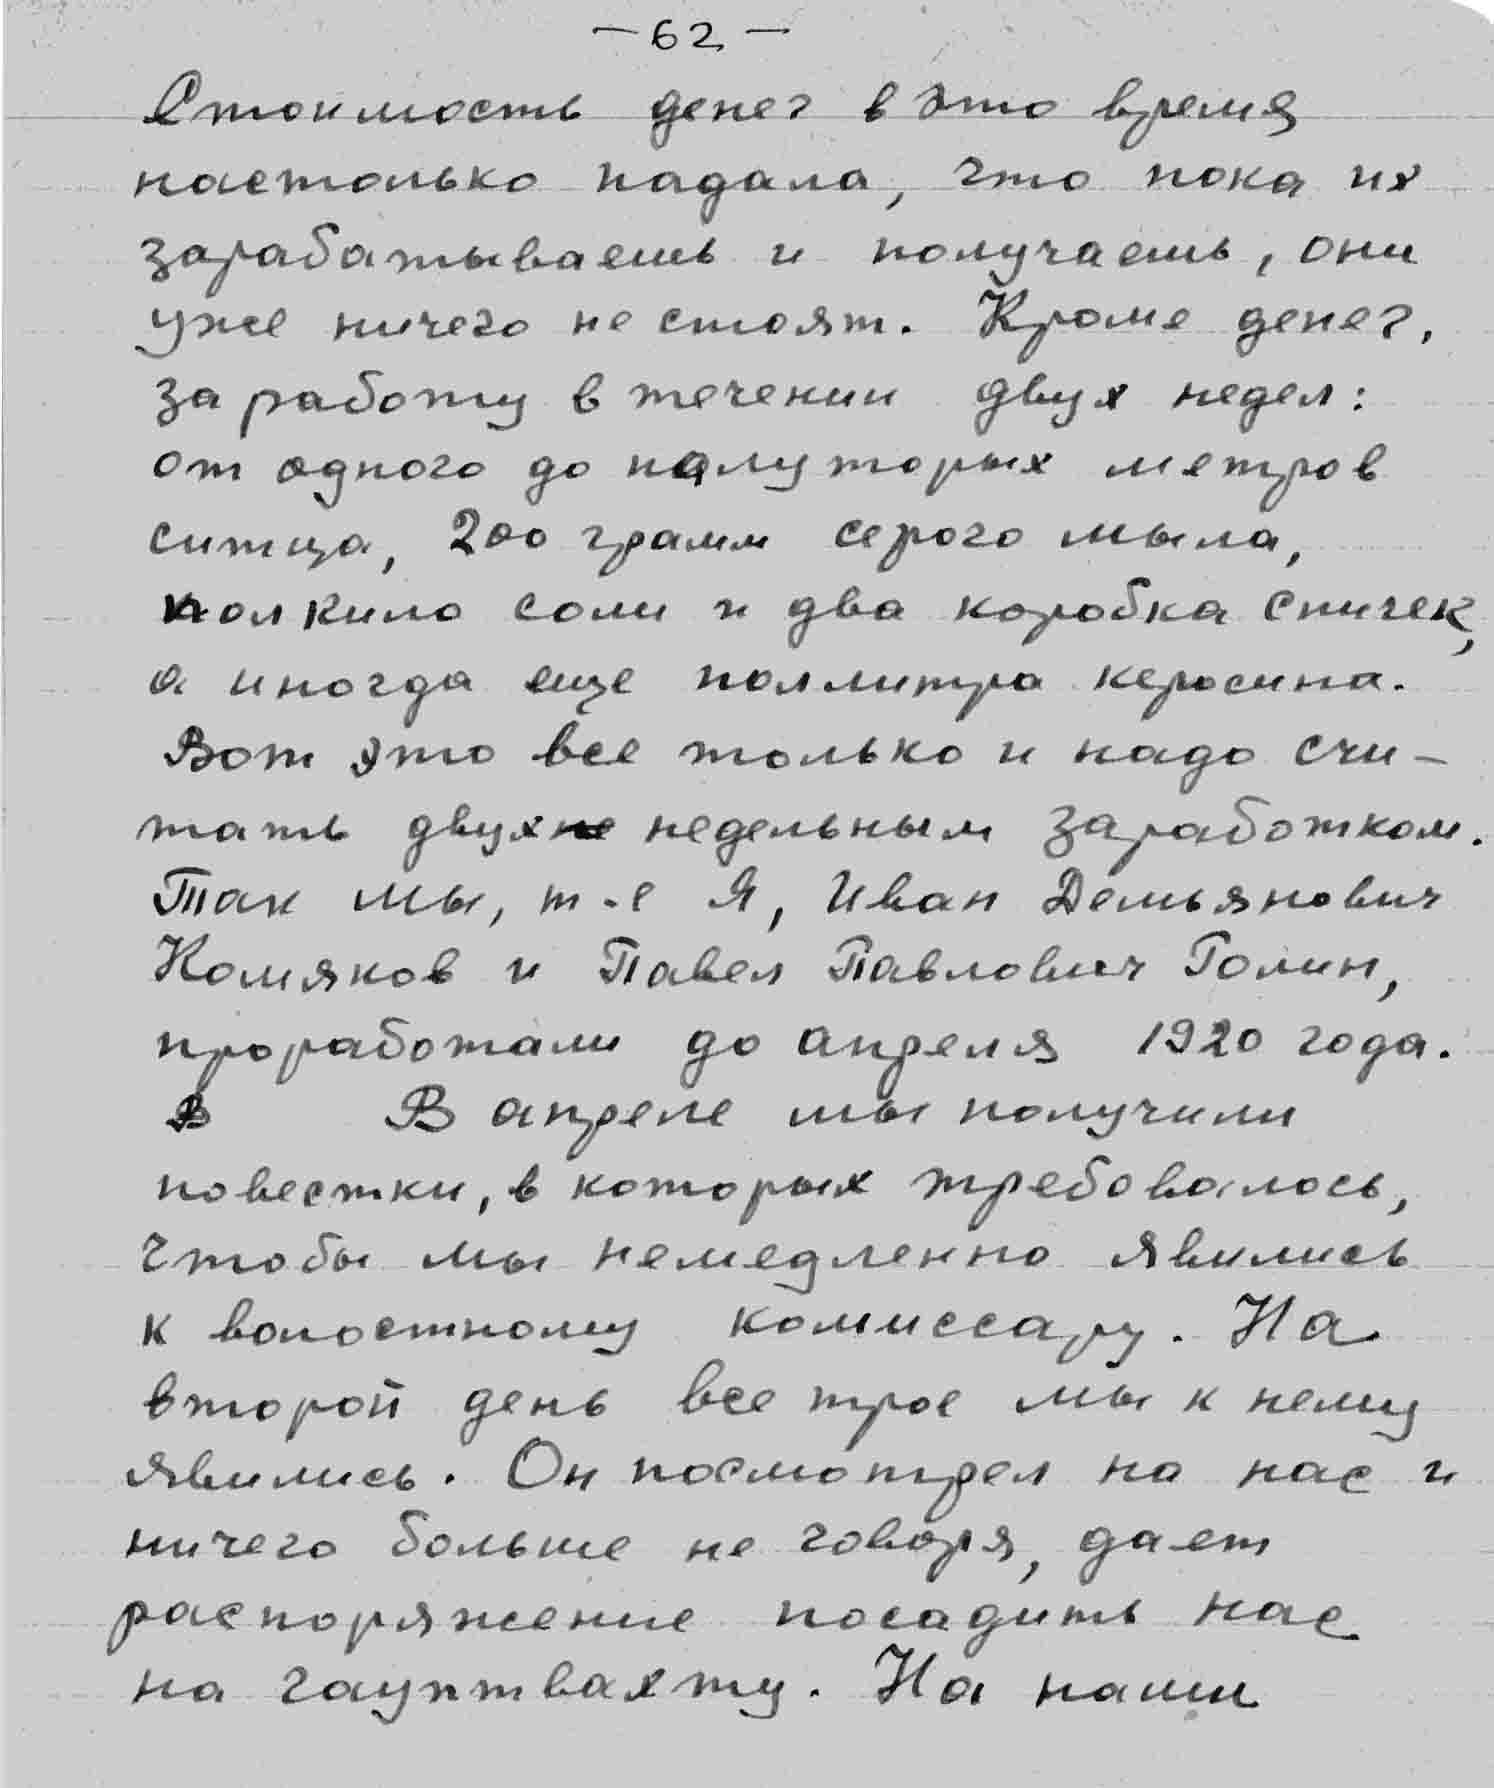 — 62 —
Стоимость денег в это время
настолько падала, что пока их
зарабатываешь и получаешь, они
уже ничего не стоят. Кроме денег,
за работу в течении двух недел:
от одного до полуторых метров
ситца, 200 грамм серого мыла,
полкило соли и два коробка спичек,
а иногда еще поллитра керосина.
Вот это все только и надо счи-
тать двухне недельным заработком.
Так мы, т-е Я, Иван Демьянович
Комяков и Павел Павлович Голин,
проработали до апреля 1920 года.
В В апреле мы получили
повестки, в которых требовалось,
чтобы мы немедленно явились
к волостному комиссару. На
второй день все трое мы к нему
явились. Он посмотрел на нас и
ничего больше не говоря, дает
распоряжение посадить нас
на гауптвахту. На наши